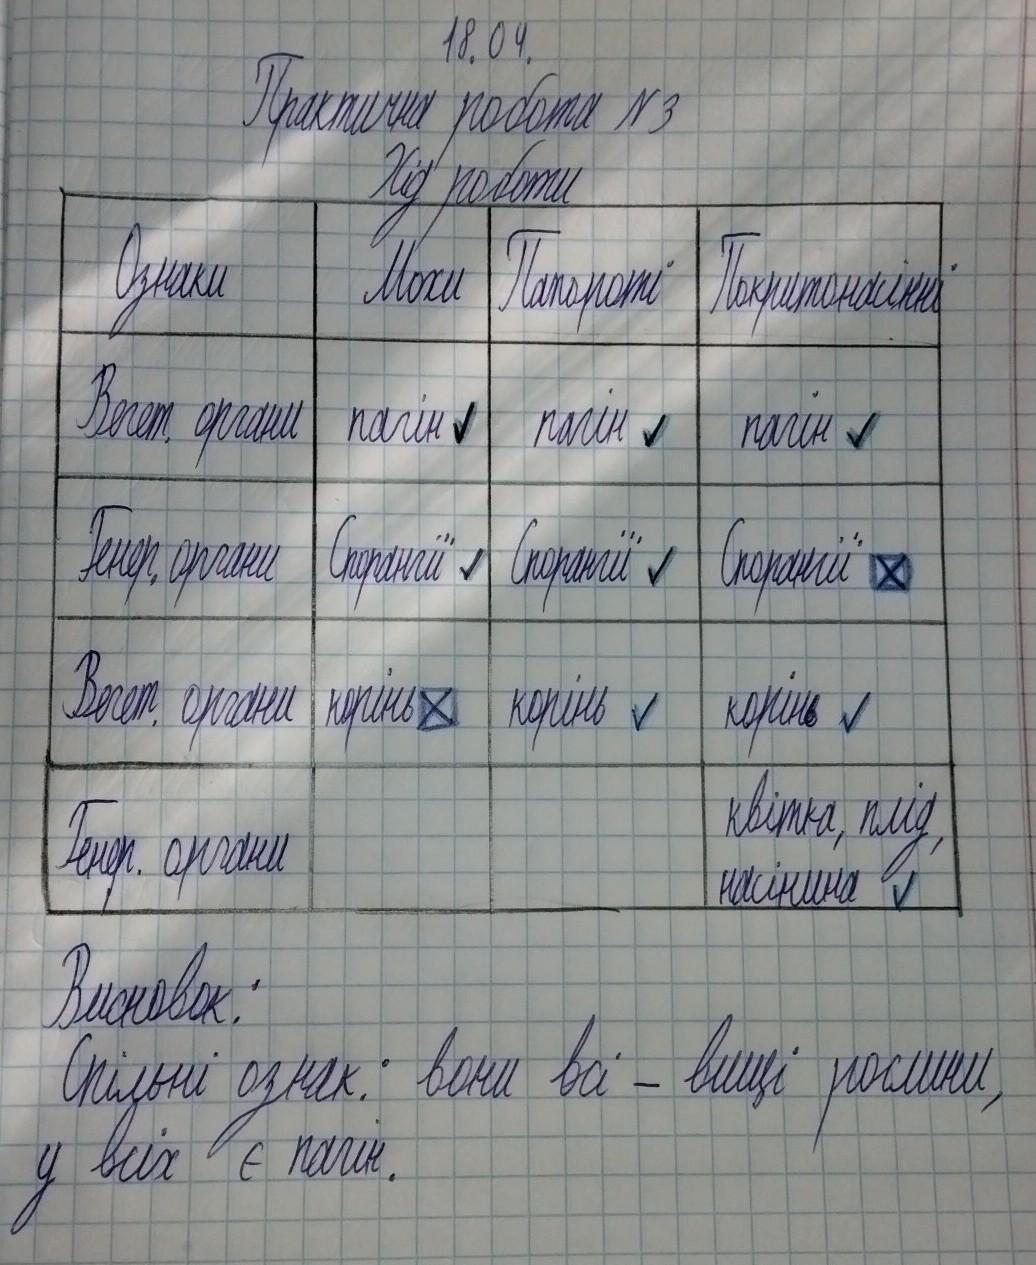 18.04.
Практична робота №3
Хід роботи
Ознаки Мохи Папороті Покритонасінні
Вегет. органи пагін ✓ пагін ✓ пагін ✓
Генер. органи Спорангії ✓ Спорангії ✓ Спорангії ☒
Вегет. органи корінь ☒ корінь ✓ корінь ✓
Генер. органи квітка, плід,
насінина ✓
Висновок:
Спільні ознак.: вони всі – вищі рослини,
у всіх є пагін.